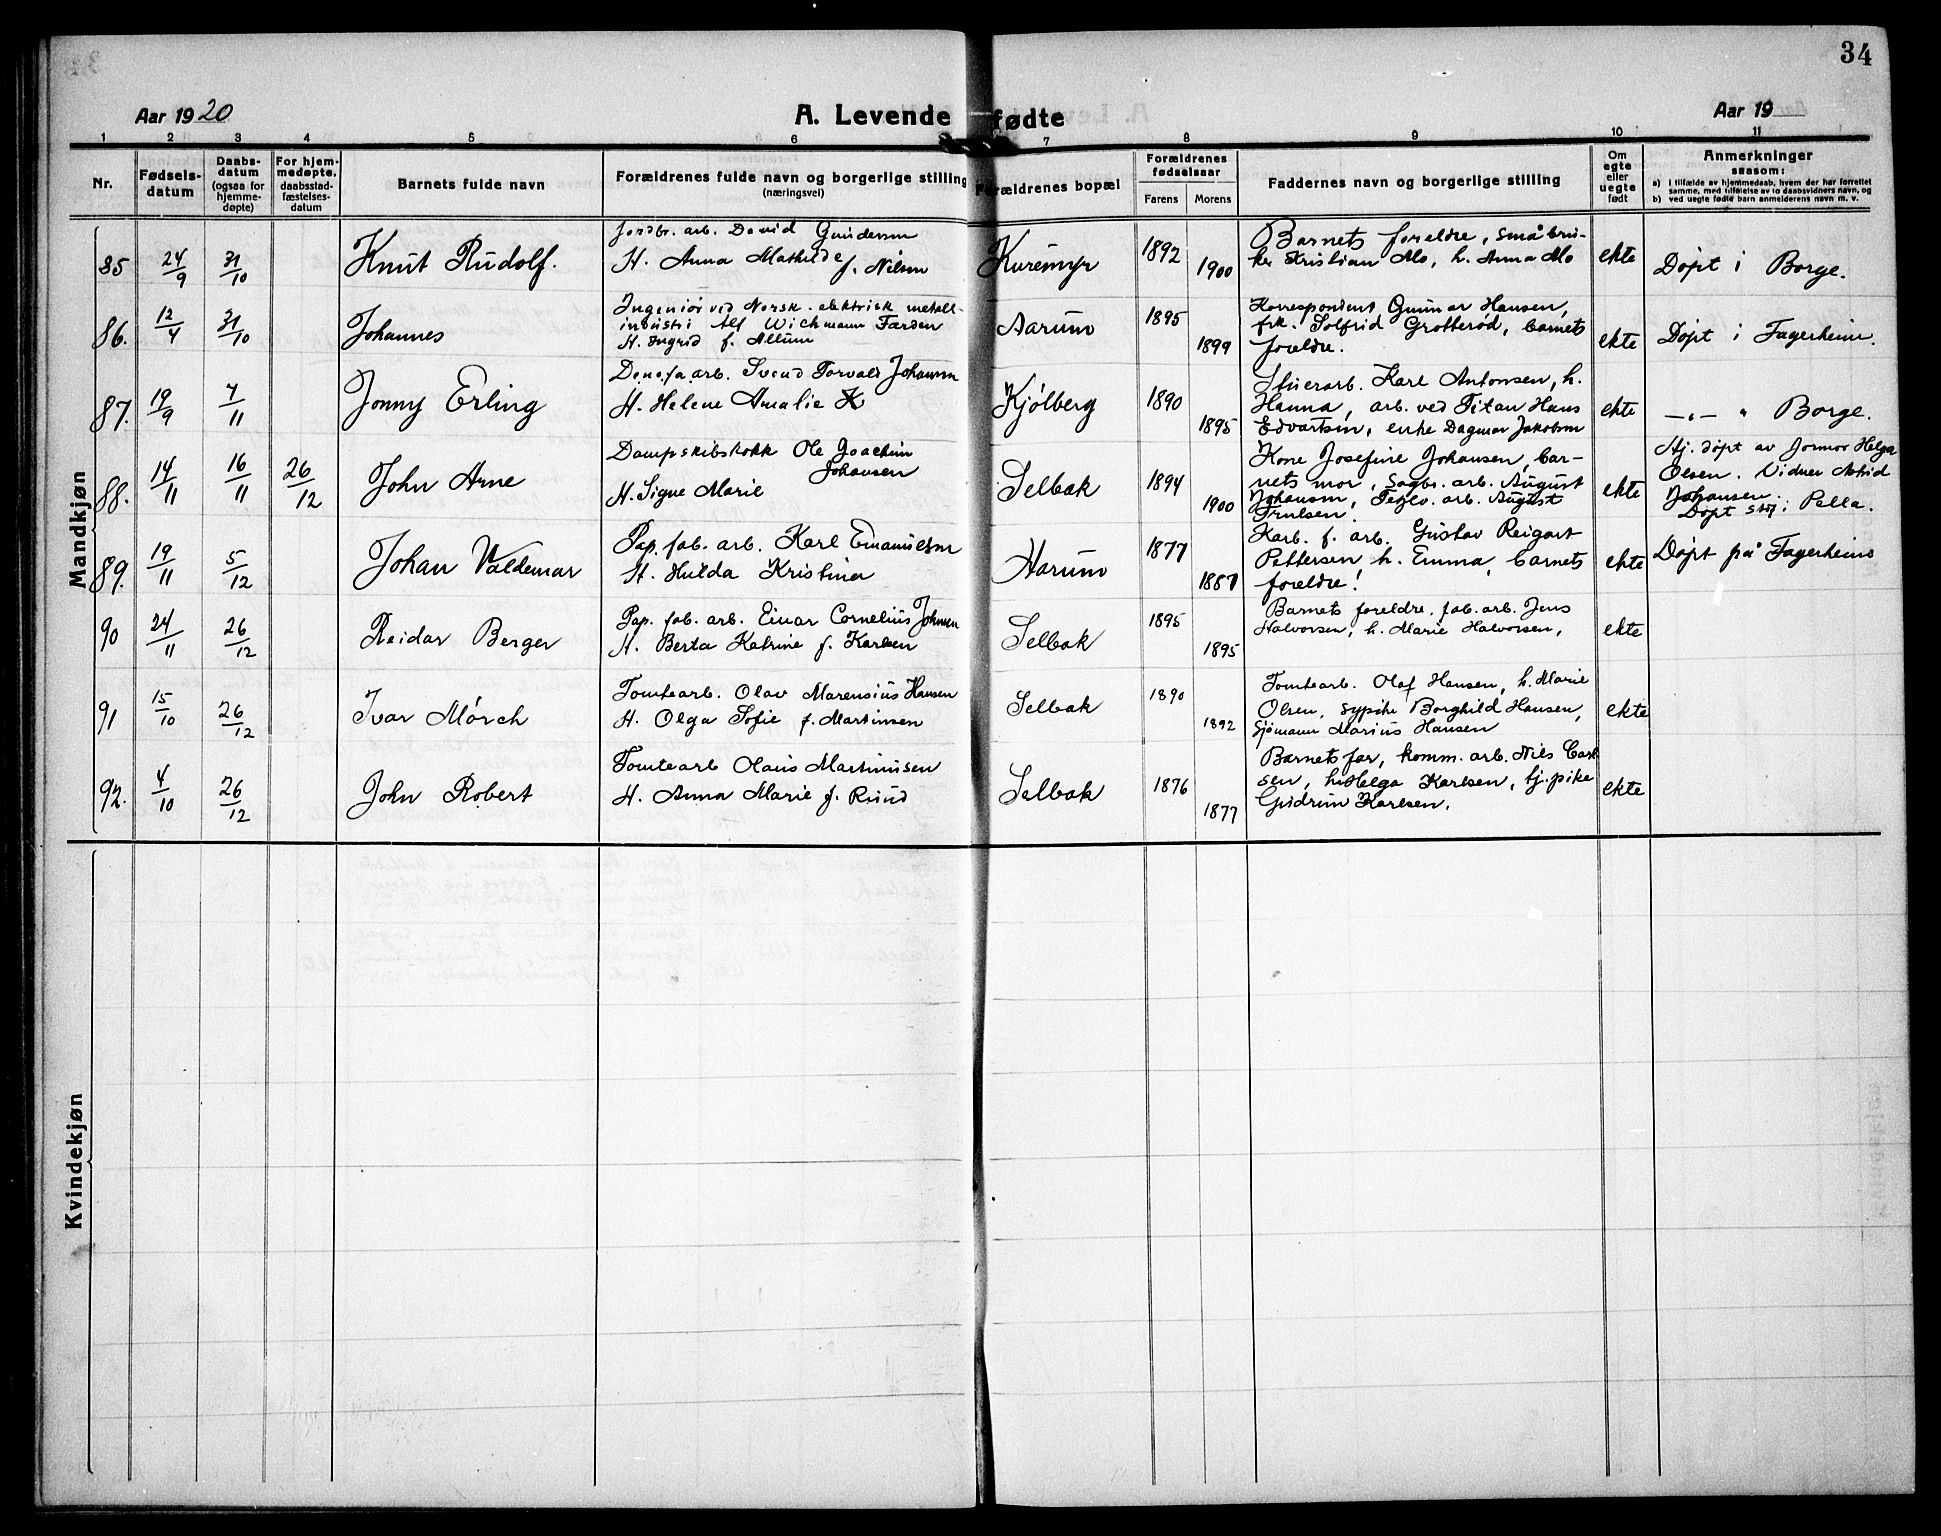 34
Aar 1920
A. Levende fødte
Aar 19
1 2 3 4 5 6 7 8 9 10 11
Nr.
Fødsels-
datum
Daabs-
datum
(ogsaa for
hjemme-
døpte)
For hjem-
medøpte,
daabsstad-
fæstelses-
datum
Barnets fulde navn
Forældrenes fulde navn og borgerlige stilling
(næringsvei)
Forældrenes bopæl
Forældrenes
fødselsaar
Farens Morens
Faddernes navn og borgerlige stilling
Om
egte
eller
uegte
født
Anmerkninger
saasom:
a) I tilfælde av hjemmedaab, hvem der har forrettet
samme, med tilføielse av to daabsvidners navn, og
b) ved uegte fødte barn anmelderens navn m. v.
Mandkjøn
85 24/9 31/10 Knut Rudolf.
Jordbr. arb. David Gundersen
H. Anna Mathilde f. Nilsen
Kuremyr 1892 1900
Barnets foreldre, småbru-
ker Kristian Mo, h. Anna Mo
ekte Døpt i Borge.
86. 12/4 31/10 Johannes
Ingeniør ved Norsk elektrisk metall-
industri Alf Wichmann Farden
H. Ingrid f. Allum
Aarum 1895 1899
Korrespondent Gunnar Hansen,
frk. Solfrid Grotterød, barnets
foreldre.
ekte Døpt i Fagerheim.
87. 19/9 7/11 Jonny Erling
Denofa arb. Svend Torvald Johansen
H. Helene Amalie
Kjølberg 1890 1895
Stuerarb. Karl Antonsen, h.
Hanna, arb. ved Titan Hans
Edvartsen, enke Dagmar Jakobsen
ekte —„— „ Borge.
88. 14/11 16/11 26/12 John Arne
Dampskibskokk Ole Joachim
Johansen
H. Signe Marie
Selbak 1894 1900
Kone Josefine Johansen, bar-
nets mor, Sagbr. arb. August
Johansen, Teglv. arb. August
Trulsen.
ekte
Hj. døpt av Jormor Helga
Olsen. Vidner Astrid
Johansen.
Døpt stf i Pella.
89. 19/11 5/12 Johan Valdemar
Pap. fab. arb. Karl Emanuelsen
H. Hulda Kristina
Aarum 1877 1887
Karb. f. arb. Gustav Reigart
Pettersen h. Emma, barnets
foreldre!
ekte Døpt på Fagerheim
90 24/11 26/12 Reidar Berger
Pap. fab. arb. Einar Cornelius Johnsen
H. Berta Katrine f. Karlsen
Selbak 1895 1895
Barnets foreldre, fab. arb. Jens
Halvorsen, h. Marie Halvorsen,
ekte
91 15/10 26/12 Ivar Mørch
Tomtearb. Olav Marensius Hansen
H. Olga Sofie f. Martinsen
Selbak 1890 1892
Tomtearb. Olaf Hansen, h. Marie
Olsen, sypike Borghild Hansen,
Sjømann Marius Hansen
ekte
92. 4/10 26/12 John Robert
Tomtearb Olaus Martinusen
H. Anna Marie f. Ruud
Selbak 1876 1877
Barnets far, komm. arb. Nils Carl-
sen, h. Helga Karlsen, tj. pike
Gudrun Karlsen.
ekte
Kvindekjøn